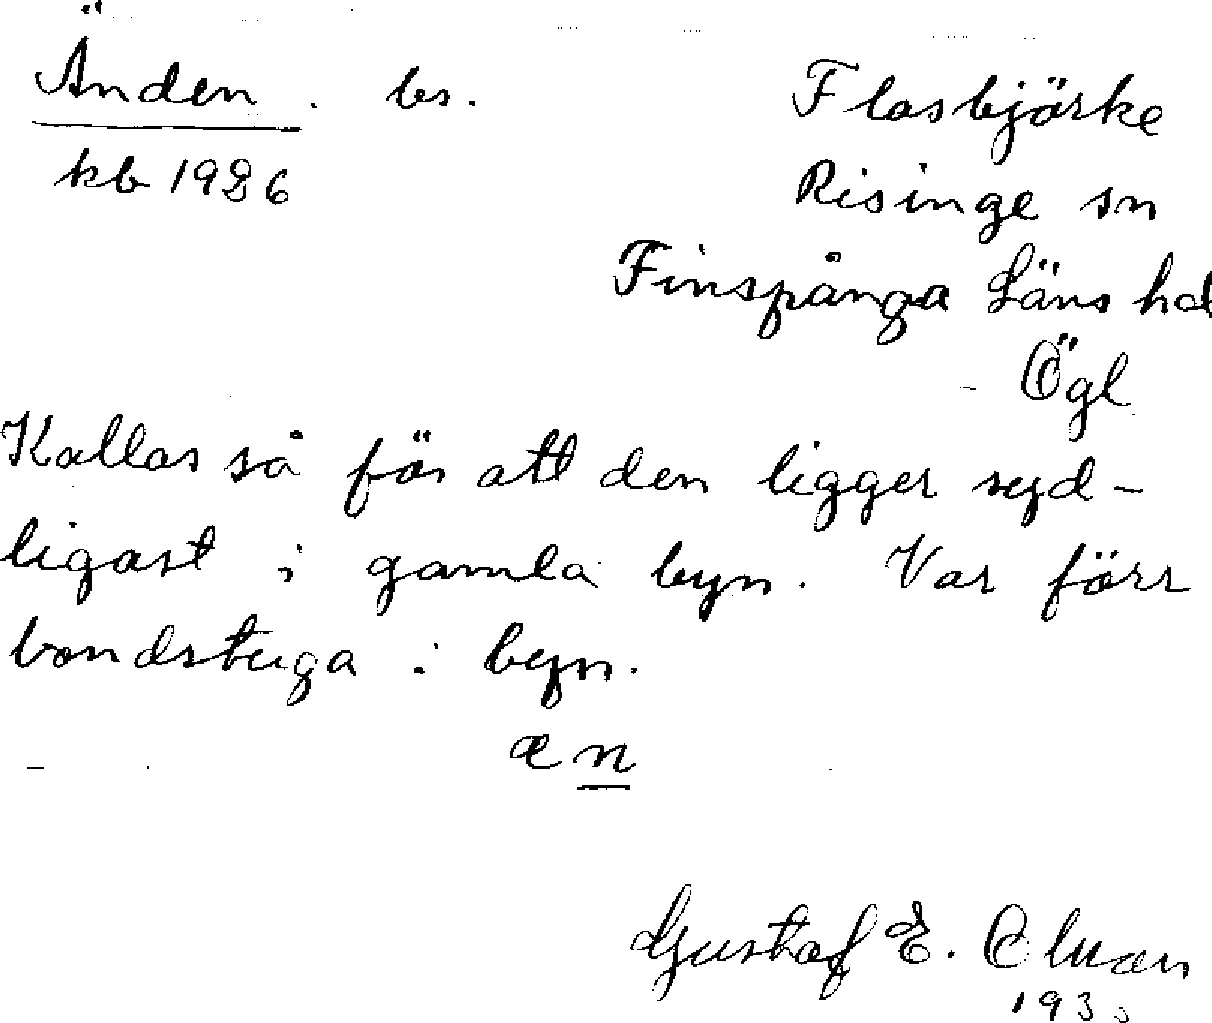 Änden. bs. Flasbjörke
kb 1926 Risinge sn
Finspånga Läns hd
Ögl
Kallas så för att den ligger syd-
ligast i gamla byn. Var förr
bondstuga i byn.
æn
Gustaf E.